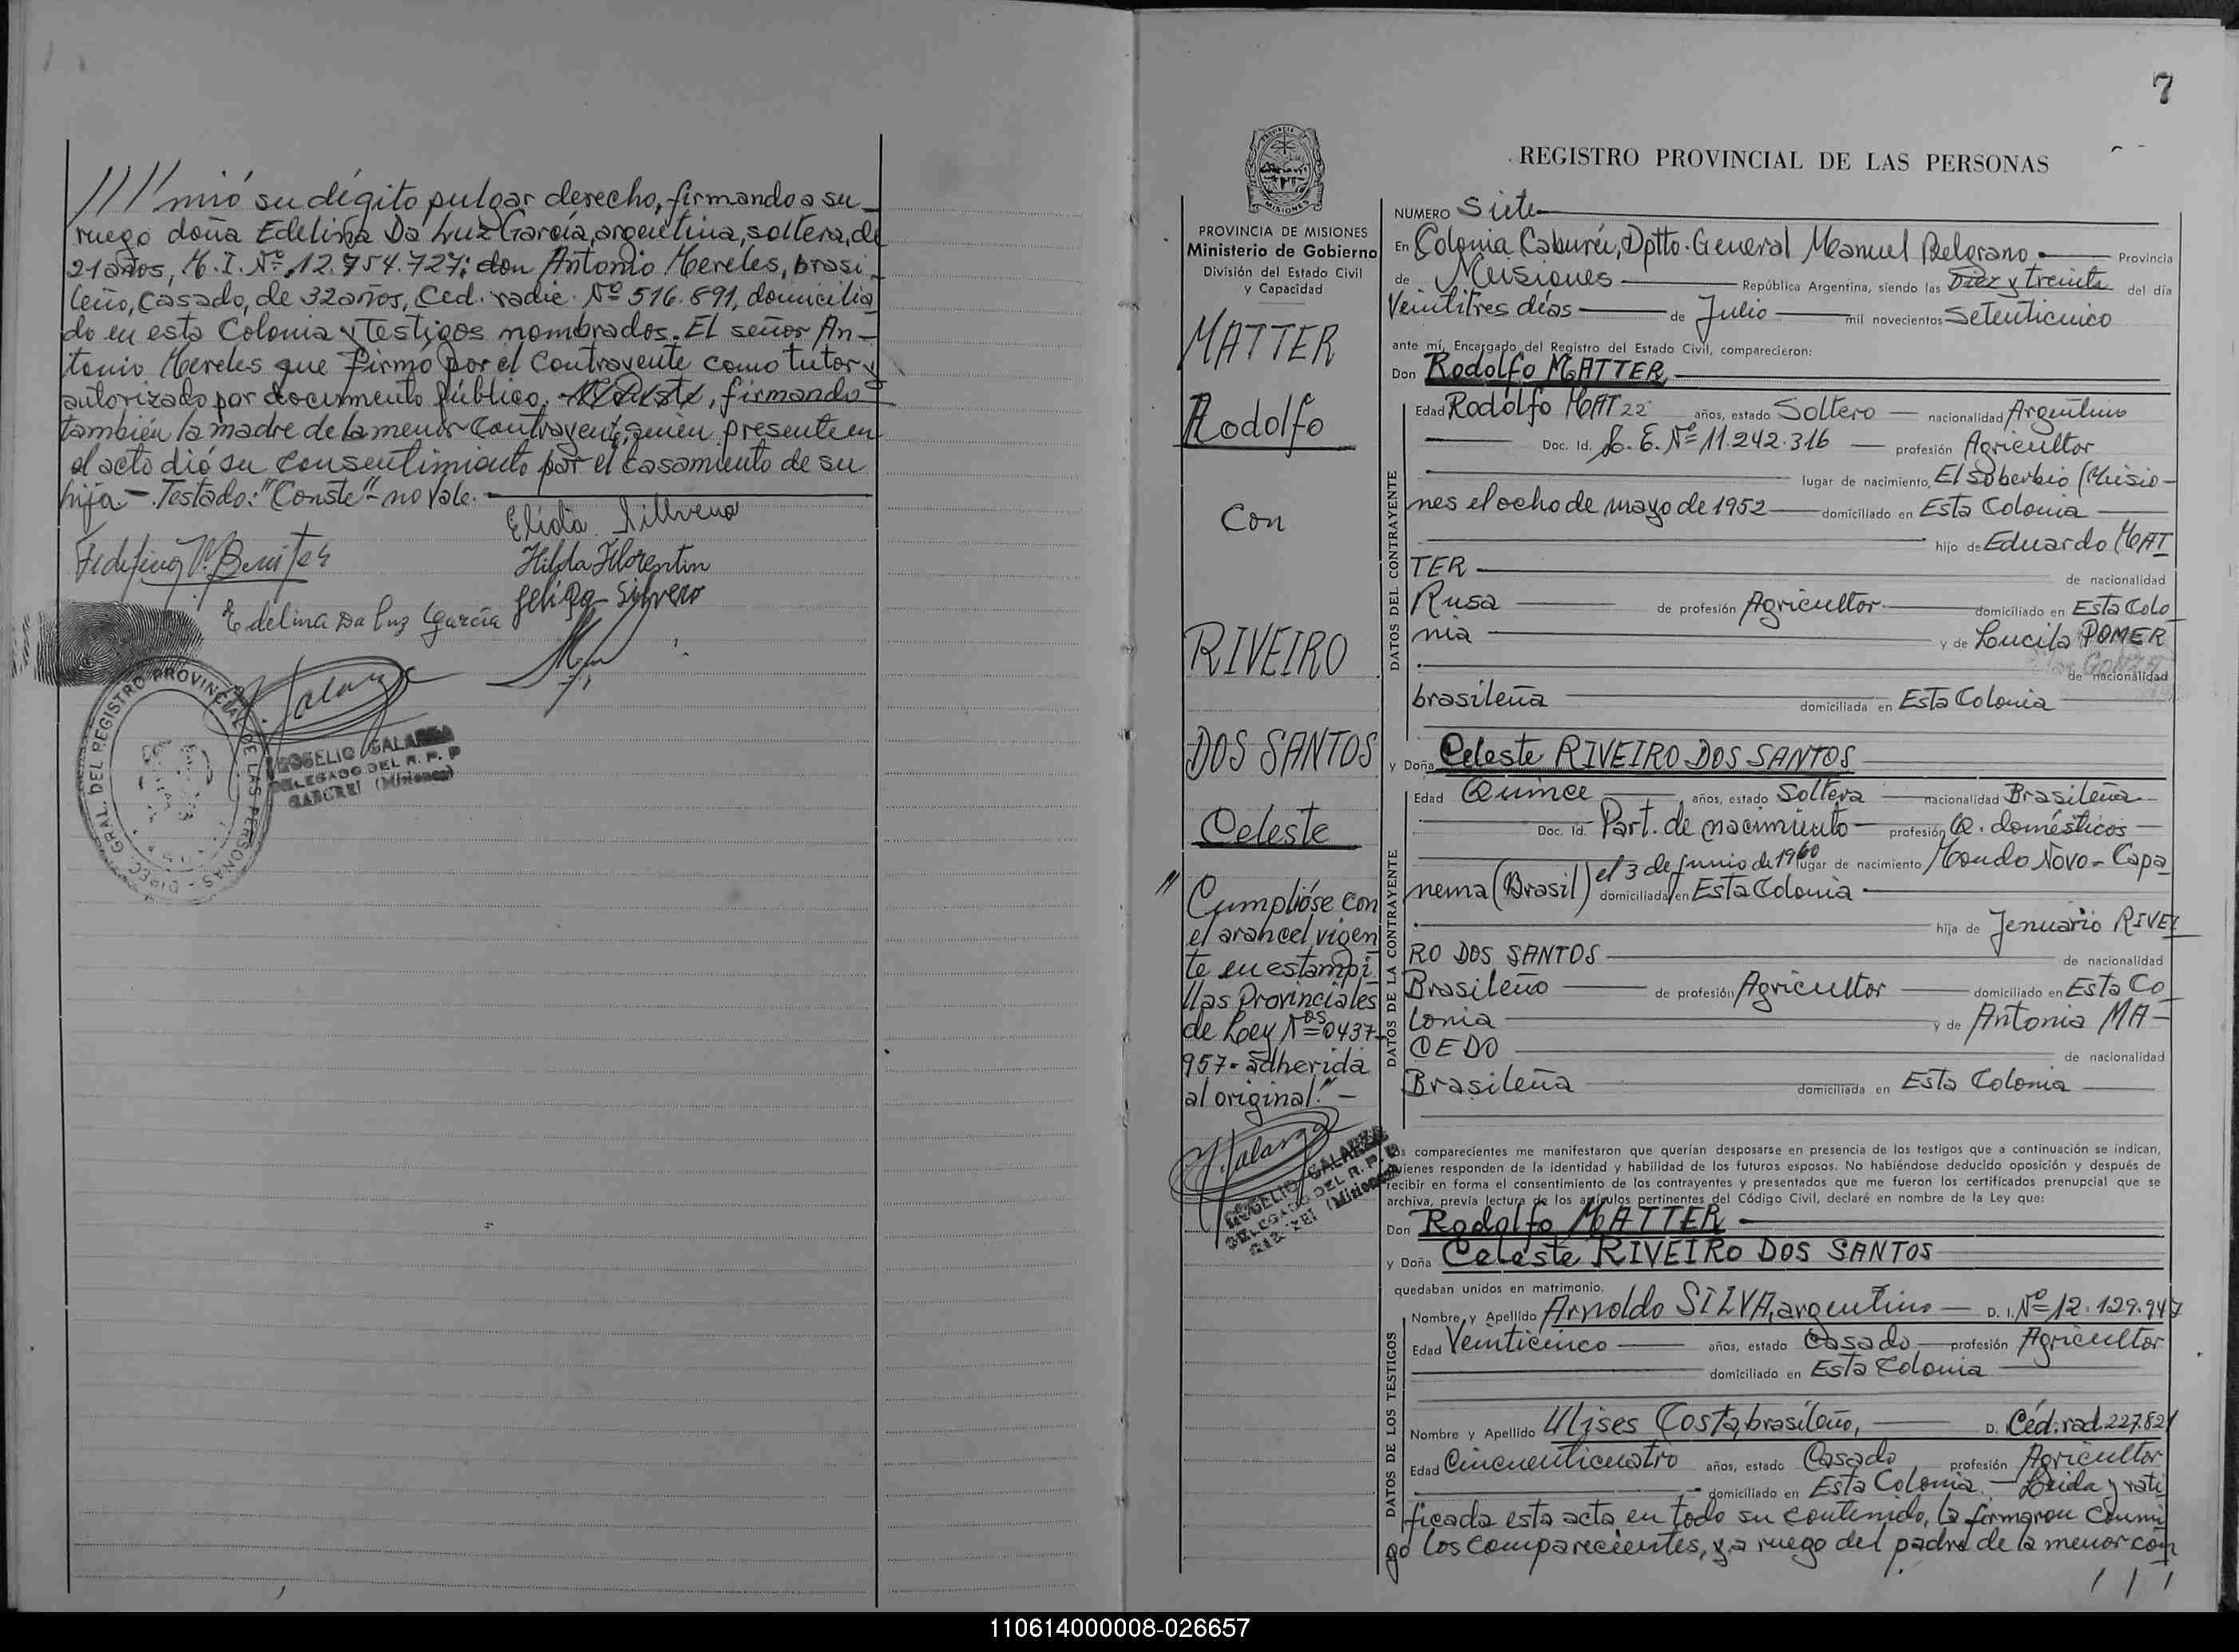 //// mió su dígito pulgar derecho, firmando a su
ruego doña Edelina Da Luz García, argentina, soltera, de
21 años, M.I. Nº 12.954.727; don Antonio Mereles, brasi-
leño, casado, de 32 años, Ced. radic. Nº 516.891, domicilia
do en esta Colonia y Testigos nombrados. El señor An-
tonio Mereles que firmó por el contrayente como tutor y
autorizado por documento público. , firmando
también la madre de la menor contrayente, quien presente en
el acto dió su consentimiento par el casamiento de su
hija -. Testado: "Conste" - no vale. -
Elida
Hilda Florentin
Benitez
Edelina Da Luz García
DIREC. GRAL. DEL REGISTRO PROVINCIAL DE LAS PERSONAS
ROGELIO GALARZA
DELEGADO DEL R. P. P
CABUREI (Misiones)
7
PROVINCIA DE MISIONES
Ministerio de Gobierno
División del Estado Civil
y Capacidad
MATTER
Rodolfo
Con
RIVEIRO
DOS SANTOS
Celeste
" Cumplióse con
el arancel vigen
te en estampi
llas Provinciales
de Ley Nºs 0437-
957- adherida
al original." -
ROGELIO GALARZA
DELEGADO DEL R. P. P
CABUREI (Misiones)
REGISTRO PROVINCIAL DE LAS PERSONAS
NUMERO Siete
En Colonia Caburei, Dptto. General Manuel Belgrano Provincia
de Misiones República Argentina, siendo las Diez y treinta del día
Veintitres días de Julio mil novecientos Setenticinco
ante mí, Encargado del Registro del Estado Civil, comparecieron:
Don Rodolfo MATTER,
DATOS DEL CONTRAYENTE
Edad Rodolfo MAT 22 años, estado Soltero nacionalidad Argentino
Doc. Id. L. E. Nº 11.242.316 profesión Agricultor
lugar de nacimiento, El Soberbio (Misio-
nes el ocho de mayo de 1952 domiciliado en Esta Colonia
hijo de Eduardo MAT
TER de nacionalidad
Rusa de profesión Agricultor domiciliado en Esta Colo
nia y de Lucila POMER
de nacionalidad
brasileña domiciliada en Esta Colonia
y Doña Celeste RIVEIRO DOS SANTOS
DATOS DE LA CONTRAYENTE
Edad Quince años, estado Soltera nacionalidad Brasileña
Doc. Id. Part. de nacimiento profesión Q. domésticos
el 3 de junio de 1960 lugar de nacimiento Mondo Novo - Capa
nema (Brasil) domiciliada en Esta Colonia
hija de Jenuario RIVEI
RO DOS SANTOS de nacionalidad
Brasileño de profesión Agricultor domiciliado en Esta Co
lonia y de Antonia MA-
CEDO de nacionalidad
Brasileña domiciliada en Esta Colonia
Los comparecientes me manifestaron que querían desposarse en presencia de los testigos que a continuación se indican,
quienes responden de la identidad y habilidad de los futuros esposos. No habiéndose deducido oposición y después de
recibir en forma el consentimiento de los contrayentes y presentados que me fueron los certificados prenupcial que se
archiva, previa lectura de los artículos pertinentes del Código Civil, declaré en nombre de la Ley que:
Don Rodolfo MATTER
y Doña Celeste RIVEIRO DOS SANTOS
quedaban unidos en matrimonio.
DATOS DE LOS TESTIGOS
Nombre y Apellido Arnoldo SILVA, argentino D. I. Nº 12.129.947
Edad Veinticinco años, estado Casado profesión Agricultor
domiciliado en Esta Colonia
Nombre y Apellido Ulises Costa, brasileño, D. Céd. rad. 227.821
Edad Cincuenticuatro años, estado Casado profesión Agricultor
domiciliado en Esta Colonia. - Leida y rati
ficada esta acta en todo su contenido, la firmaron conmi
go los comparecientes, y a ruego del padre de la menor con
///
110614000008-026657